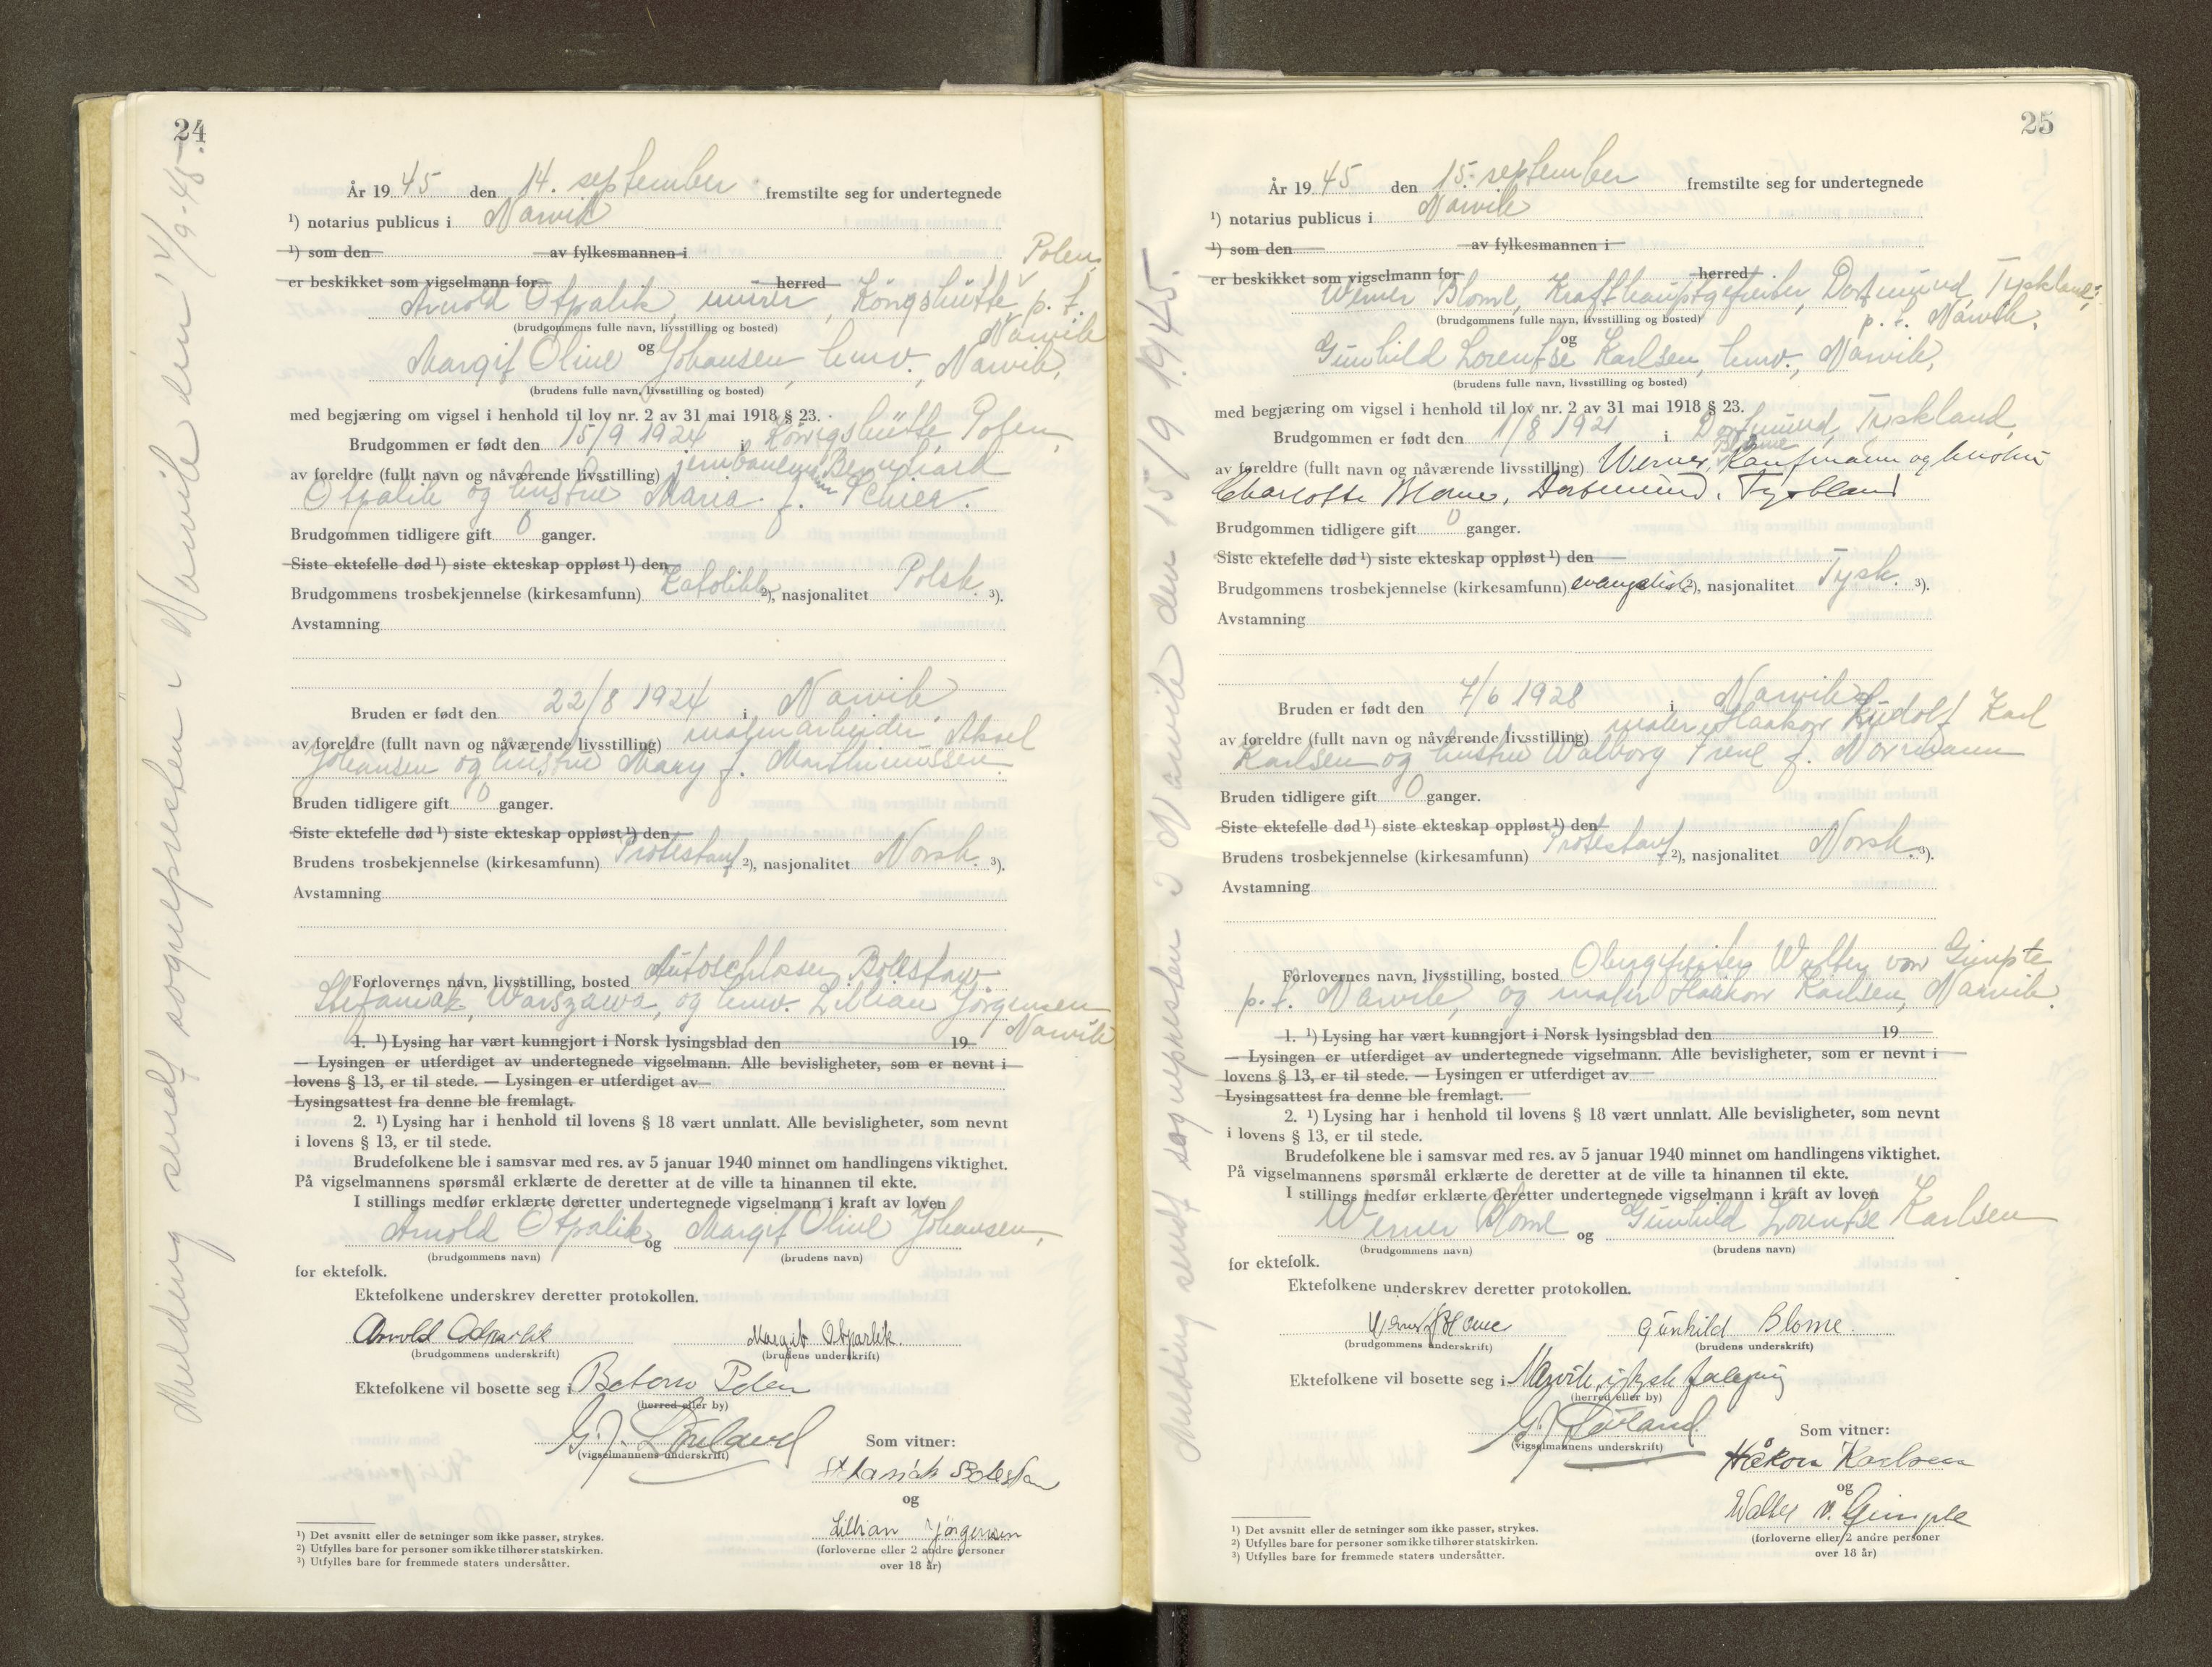 24
Melding sendt sognepresten i Narvik den 14/9-45.
År 19 45 den 14. september fremstilte seg for undertegnede
¹) notarius publicus i Narvik
¹) som den av fylkesmannen i
Polen,
er beskikket som vigselmann for herred
Arnold Otpalik, murer, Köngshütte p. t.
(brudgommens fulle navn, livsstilling og bosted)
Narvik
og
Margit Oline Johansen, husv., Narvik,
(brudens fulle navn, livsstilling og bosted)
med begjæring om vigsel i henhold til lov nr. 2 av 31 mai 1918 § 23.
Brudgommen er født den 15/9 1924 i Königshütte, Polen,
av foreldre (fullt navn og nåværende livsstilling) Bernhard
Otpalik og hustru Maria f.
Brudgommen tidligere gift 0 ganger.
Siste ektefelle død ¹) siste ekteskap oppløst ¹) den
Brudgommens trosbekjennelse (kirkesamfunn) Katolikk ²), nasjonalitet Polsk. ³).
Avstamning
Bruden er født den 22/8 1924 i Narvik,
av foreldre (fullt navn og nåværende livsstilling) malmarbeider Aksel
Johansen og hustru Mary f. Marthinussen.
Bruden tidligere gift 0 ganger.
Siste ektefelle død ¹) siste ekteskap oppløst ¹) den
Brudens trosbekjennelse (kirkesamfunn) Protestant ²), nasjonalitet Norsk. ³).
Avstamning
Forlovernes navn, livsstilling, bosted Autoschlosser Bolestaw
Stefaniak, Warszawa, og husv. Lillian Jörgensen
Narvik
1. ¹) Lysing har vært kunngjort i Norsk lysingsblad den 19
— Lysingen er utferdiget av undertegnede vigselmann. Alle bevisligheter, som er nevnt i
lovens § 13, er til stede. — Lysingen er utferdiget av
Lysingsattest fra denne ble fremlagt.
2. ¹) Lysing har i henhold til lovens § 18 vært unnlatt. Alle bevisligheter, som nevnt
i lovens § 13, er til stede.
Brudefolkene ble i samsvar med res. av 5 januar 1940 minnet om handlingens viktighet.
På vigselmannens spørsmål erklærte de deretter at de ville ta hinannen til ekte.
I stillings medfør erklærte deretter undertegnede vigselmann i kraft av loven
Arnold Otpalik og Margit Oline Johansen,
(brudgommens navn) (brudens navn)
for ektefolk.
Ektefolkene underskrev deretter protokollen.
Arnold Otparlik Margit Otparlik.
(brudgommens underskrift) (brudens underskrift)
Ektefolkene vil bosette seg i Botom Polen
(herred eller by)
G. J. Løvland
(vigselmannens underskrift)
Som vitner:
og
Lillian Jörgensen
(forloverne eller 2 andre personer
over 18 år)
¹) Det avsnitt eller de setninger som ikke passer, strykes.
²) Utfylles bare for personer som ikke tilhører statskirken.
³) Utfylles bare for fremmede staters undersåtter.
25
Melding sendt sognepresten i Narvik den 15/9 1945.
År 19 45 den 15. september fremstilte seg for undertegnede
¹) notarius publicus i Narvik
¹) som den av fylkesmannen i
er beskikket som vigselmann for herred
Werner Blome, Krafthauptgefreiter, Dortmund, Tyskland,
(brudgommens fulle navn, livsstilling og bosted)
p. t. Narvik.
og
Gunhild Lorentse Karlsen, husv., Narvik,
(brudens fulle navn, livsstilling og bosted)
med begjæring om vigsel i henhold til lov nr. 2 av 31 mai 1918 § 23.
Brudgommen er født den 1/8 1921 i Dortmund, Tyskland,
Blome
av foreldre (fullt navn og nåværende livsstilling) Werner, Kaufmann og hustru
Charlotte Blome, Dortmund, Tyskland
Brudgommen tidligere gift 0 ganger.
Siste ektefelle død ¹) siste ekteskap oppløst ¹) den
Brudgommens trosbekjennelse (kirkesamfunn) evangelisk ²), nasjonalitet Tysk. ³).
Avstamning
Bruden er født den 7/6 1928 i Narvik
av foreldre (fullt navn og nåværende livsstilling) maler Haakon Rudolf Karl
Karlsen og hustru Walborg Irene f. Normann
Bruden tidligere gift 0 ganger.
Siste ektefelle død ¹) siste ekteskap oppløst ¹) den
Brudens trosbekjennelse (kirkesamfunn) Protestant ²), nasjonalitet Norsk. ³).
Avstamning
Forlovernes navn, livsstilling, bosted Obergefreiter Walter von Gimpte
p. t. Narvik, og maler Haakon Karlsen, Narvik.
1. ¹) Lysing har vært kunngjort i Norsk lysingsblad den 19
— Lysingen er utferdiget av undertegnede vigselmann. Alle bevisligheter, som er nevnt i
lovens § 13, er til stede. — Lysingen er utferdiget av
Lysingsattest fra denne ble fremlagt.
2. ¹) Lysing har i henhold til lovens § 18 vært unnlatt. Alle bevisligheter, som nevnt
i lovens § 13, er til stede.
Brudefolkene ble i samsvar med res. av 5 januar 1940 minnet om handlingens viktighet.
På vigselmannens spørsmål erklærte de deretter at de ville ta hinannen til ekte.
I stillings medfør erklærte deretter undertegnede vigselmann i kraft av loven
Werner Blome og Gunhild Lorentse Karlsen
(brudgommens navn) (brudens navn)
for ektefolk.
Ektefolkene underskrev deretter protokollen.
Werner Blome Gunhild Blome.
(brudgommens underskrift) (brudens underskrift)
Ektefolkene vil bosette seg i Narvik, i tysk
(herred eller by)
G. J. Løvland.
(vigselmannens underskrift)
Som vitner:
Håkon Karlsen
og
Walter v. Gimpte
(forloverne eller 2 andre personer
over 18 år)
¹) Det avsnitt eller de setninger som ikke passer, strykes.
²) Utfylles bare for personer som ikke tilhører statskirken.
³) Utfylles bare for fremmede staters undersåtter.